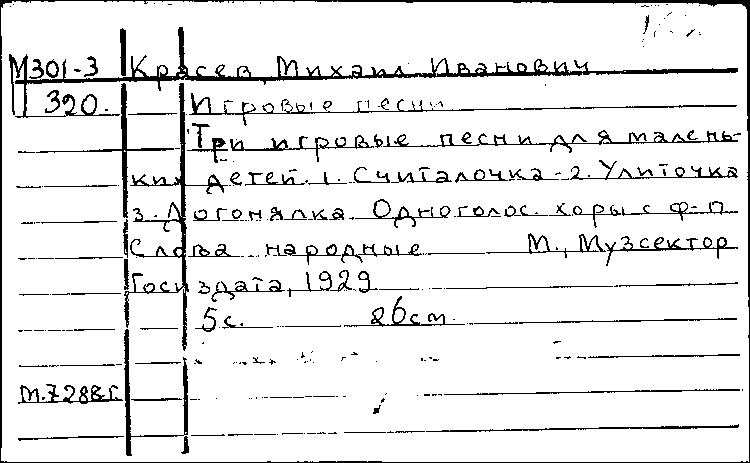 М301-3 Красев, Михаил Иванович
320. Игровые песни
Три игровые песни для малень-
ких детей. 1. Считалочка - 2. Улиточка
3. Догонялка. Одноголос. хоры с ф-п.
Слова народные М., Музсектор
Госиздата, 1929
5с. 26см.
М.7288г.